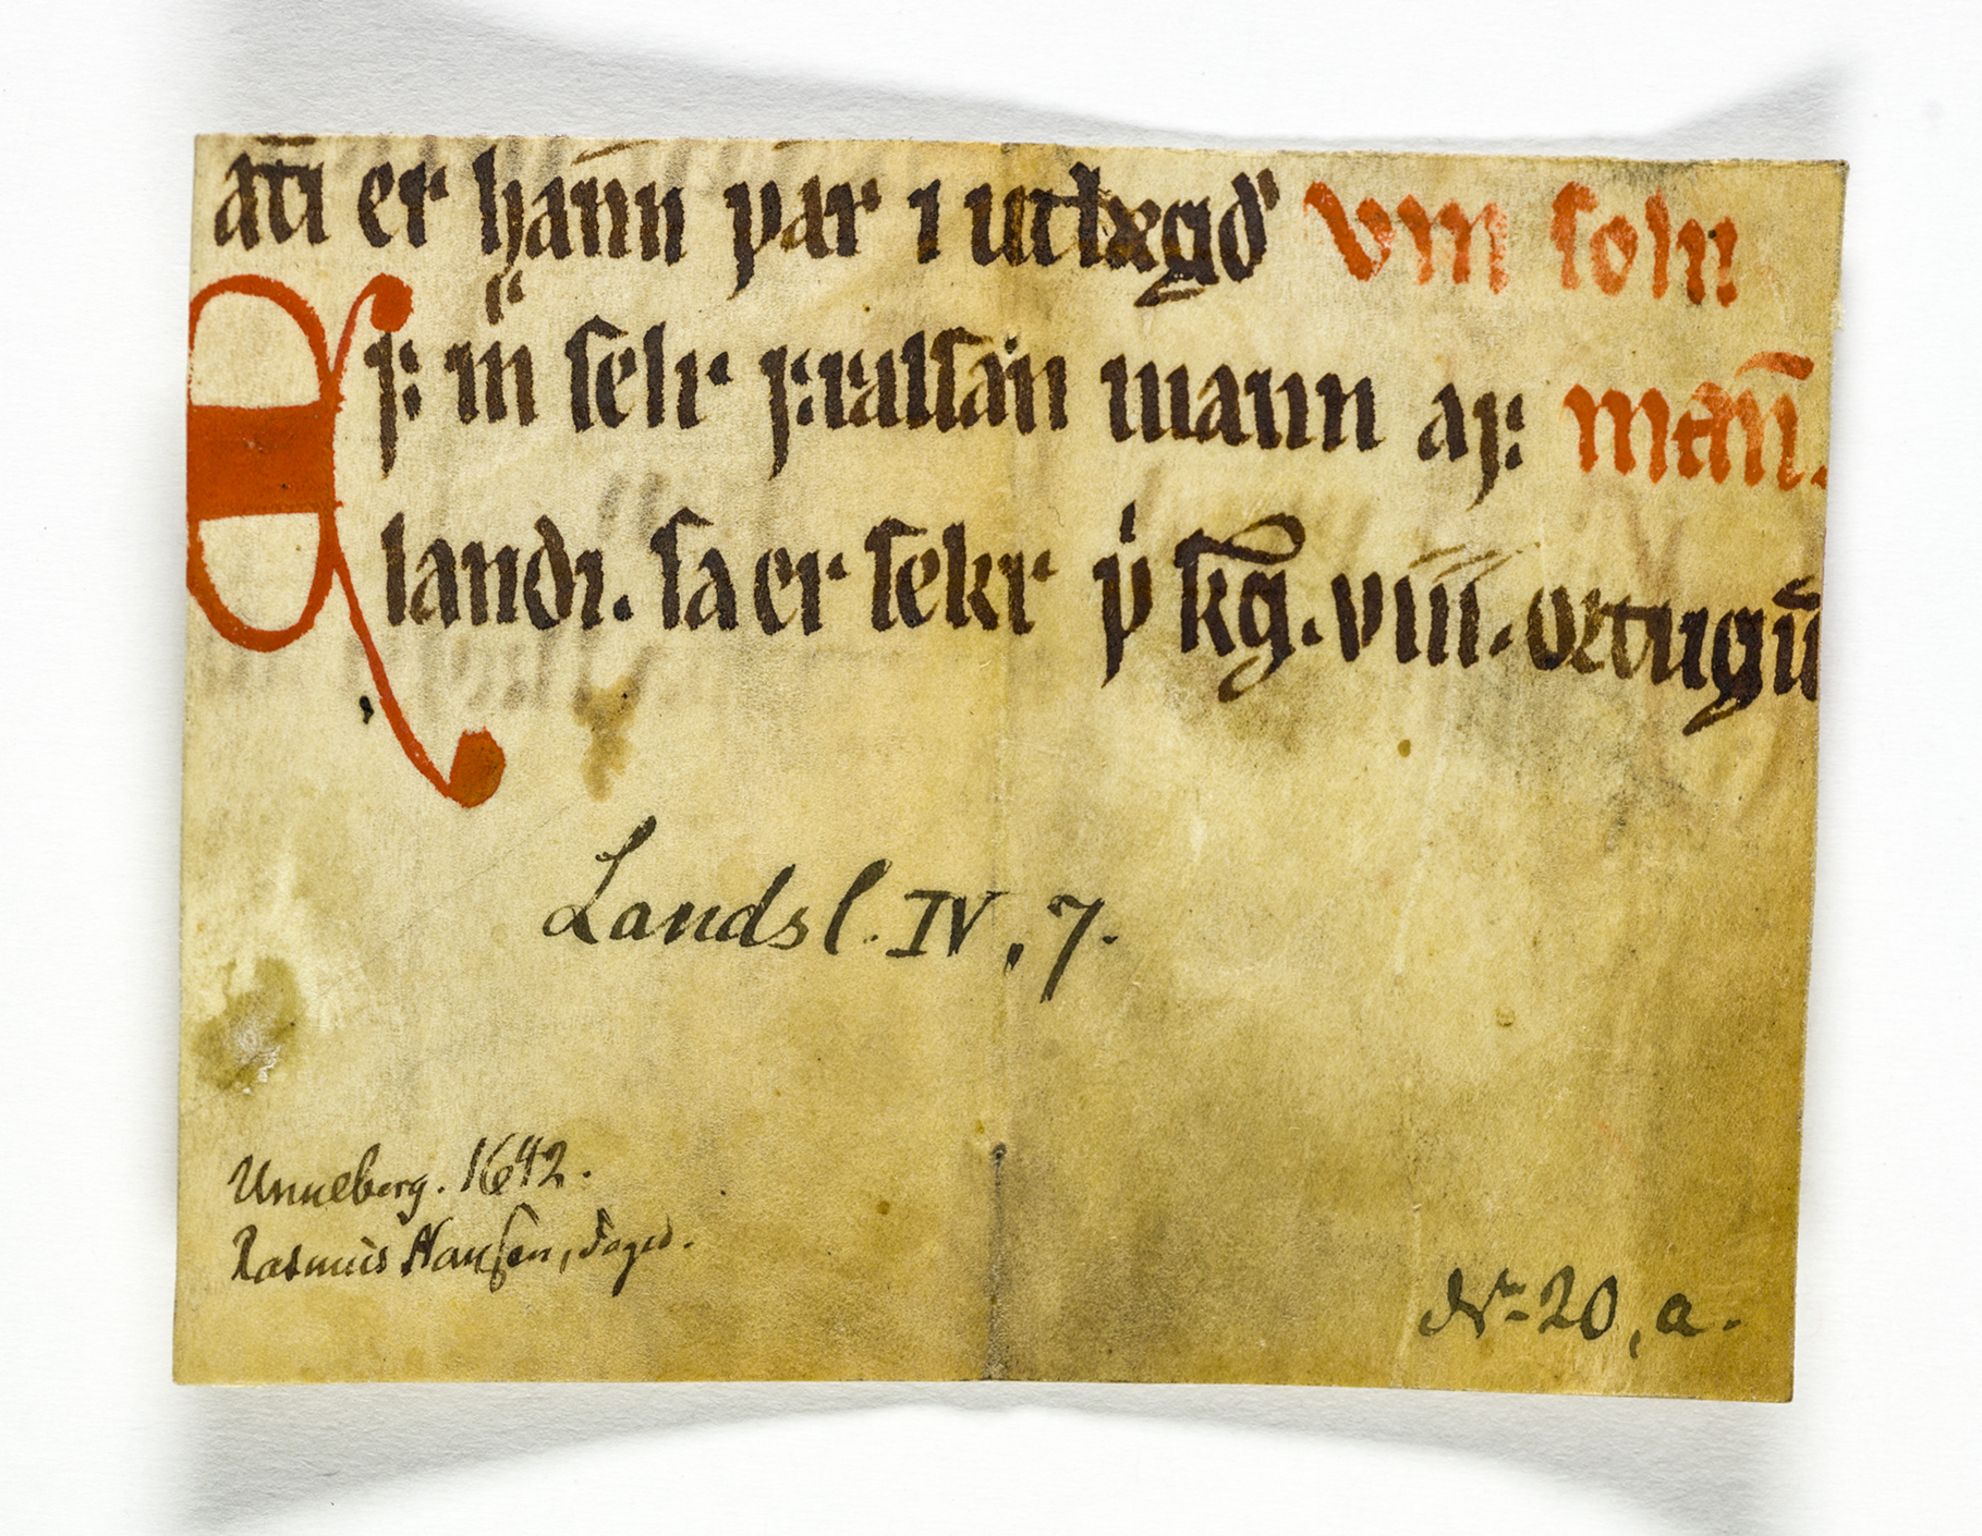 atı er ha̅nn ꝩar ı utlægð vm solu
Ef m̅ selr frıalsan mann af mann̅.
landı. sa er sekr ꝩͥ kg̅. vııı. ortugū
Landsl. IV, 7.
Unneberg. 1642.
Rasmus Hansen, Foged.
Nr. 20, a.